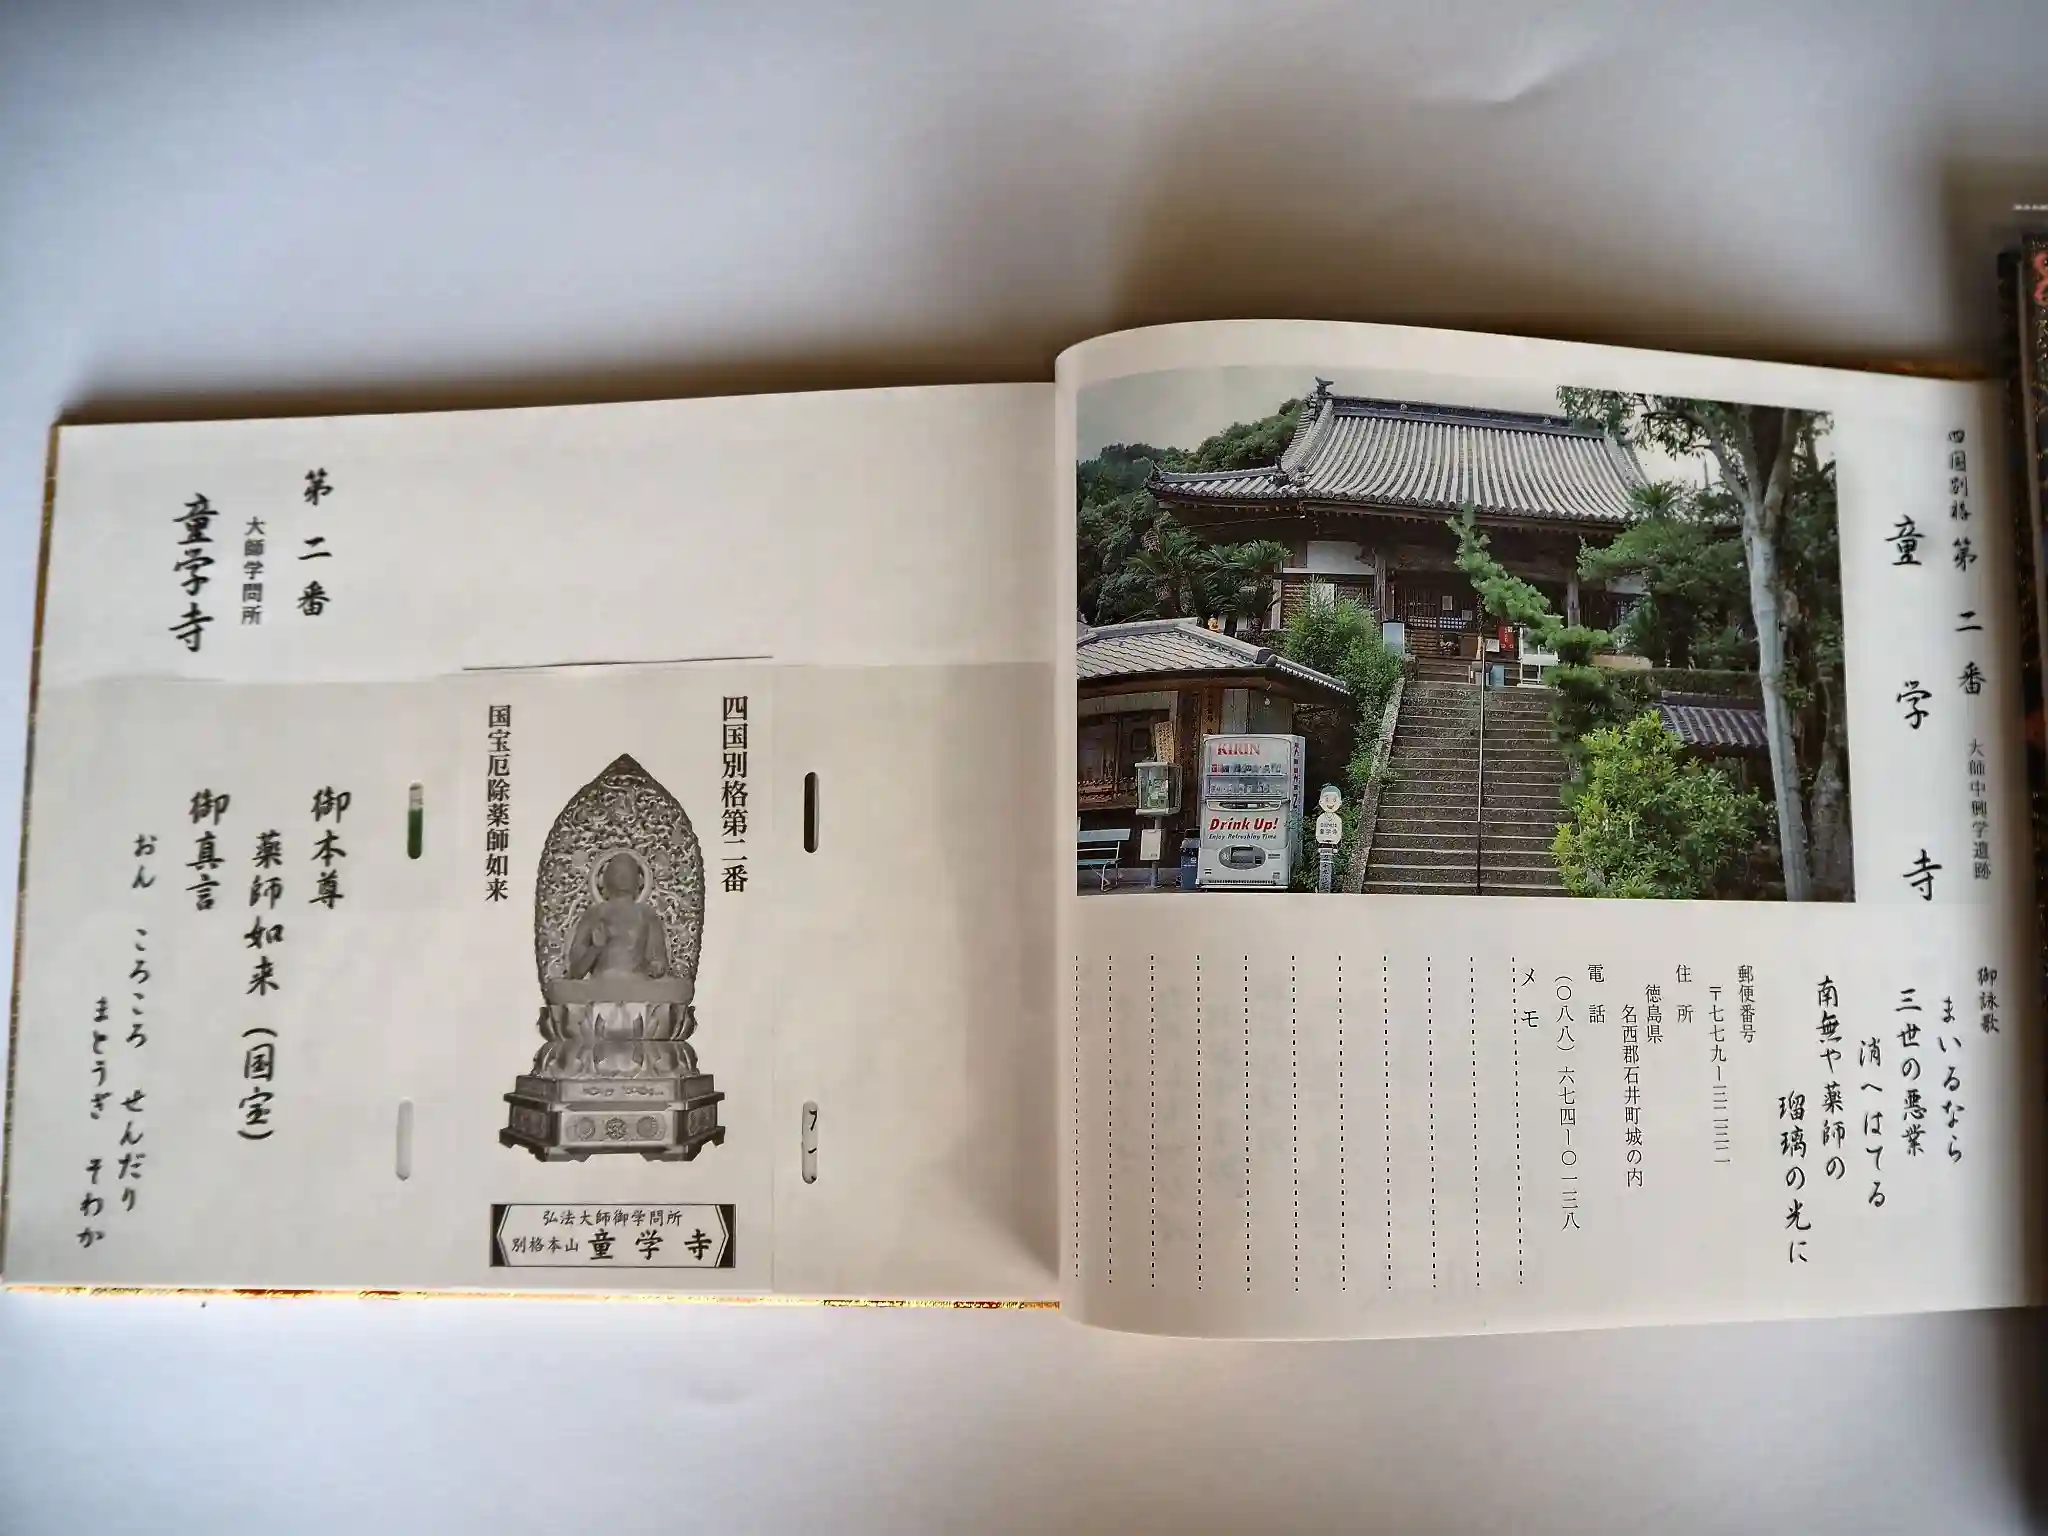 四国別格 第二番 大師中興学遺跡
童学寺
御詠歌
まいるなら
三世の悪業
消へはてる
南無や薬師の
瑠璃の光に
郵便番号
〒七七九ー三二三二
住所
徳島県
名西郡石井町城の内
電話
(〇八八)六七四ー〇一三八
メモ
KIRIN
Drink Up!
Enjoy Refreshing Time
童学寺
第二番
大師学問所
童学寺
四国別格第二番
国宝厄除薬師如来
弘法大師御学問所
別格本山 童学寺
御本尊
薬師如来(国宝)
御真言
おん ころころ せんだり
まとうぎ そわか